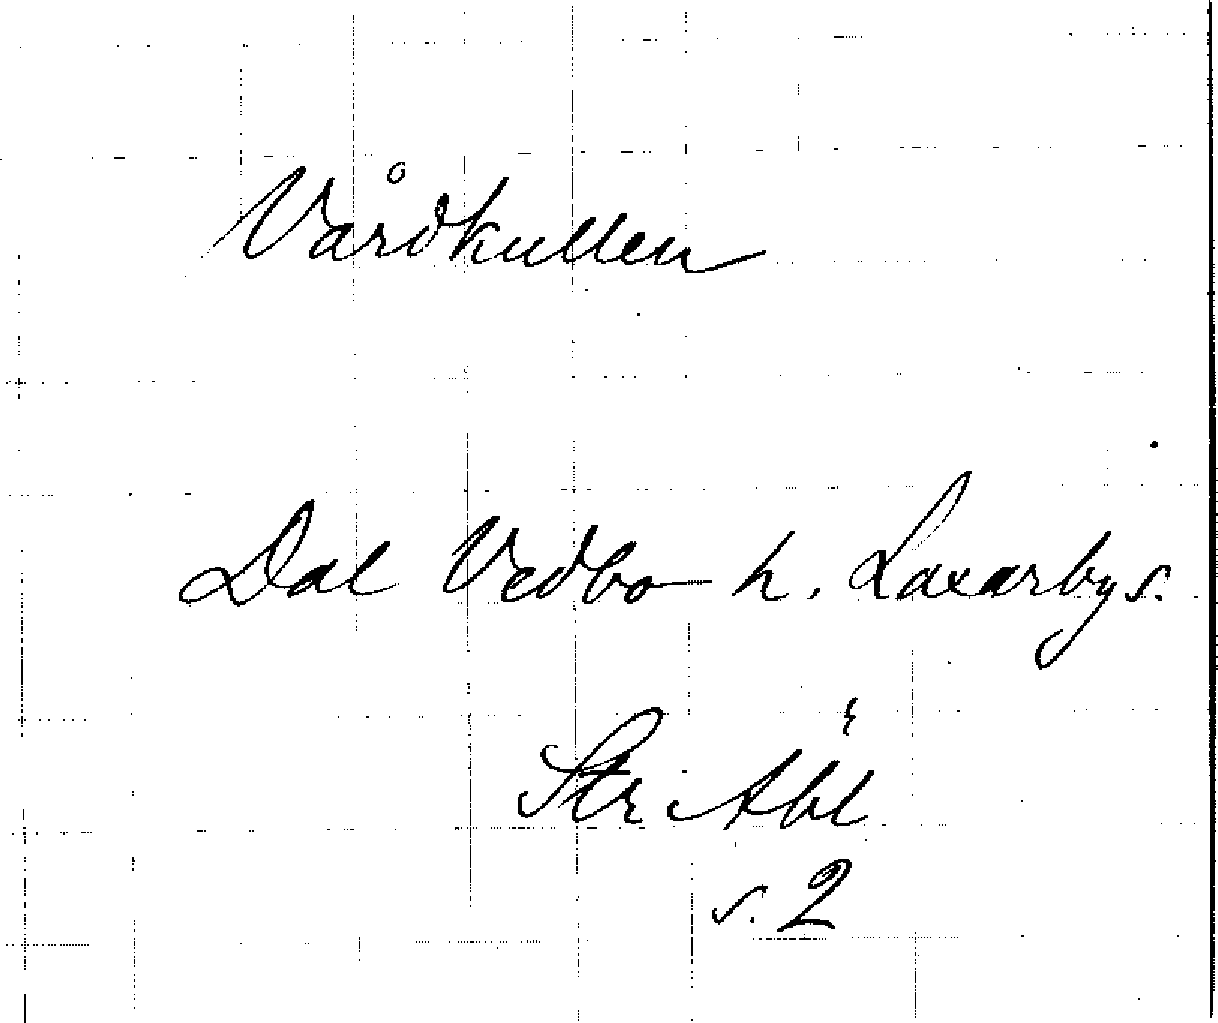 Vårdkullen
Dal Vedbo h. Laxarby s.
Str Abl
s. 2